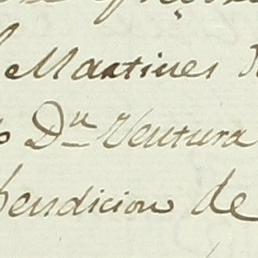 Martines
Dn Ventura
pendicion de